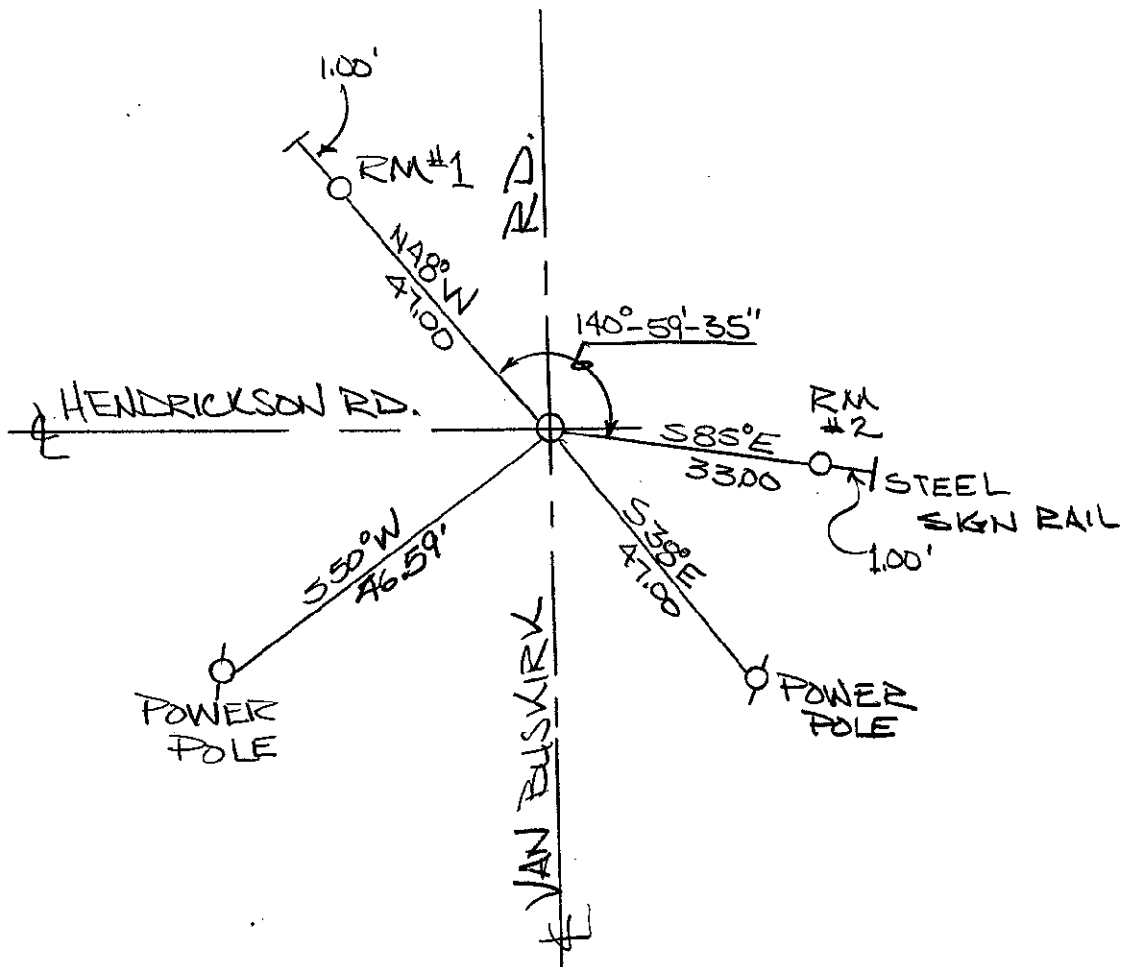 1.00'
RM #1
RD.
N48°W
47.00
140°-59'-35"
HENDRICKSON RD.
RM
#2
S85°E
33.00
STEEL
SIGN RAIL
1.00'
S50°W
46.59'
S38°E
47.00
POWER
POLE
POWER
POLE
VAN BUSKIRK